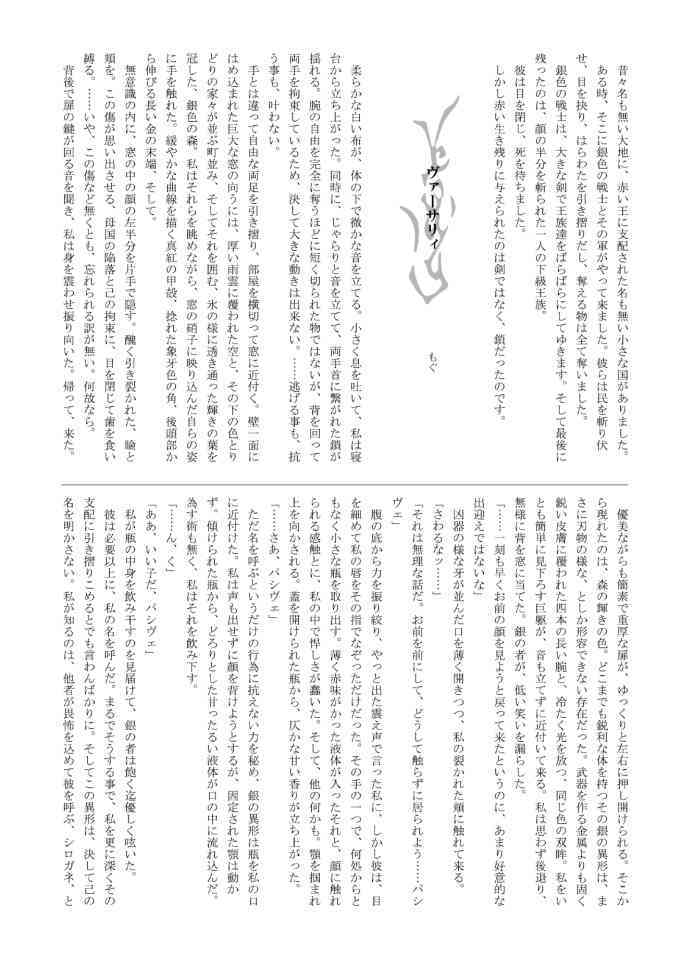 昔々名も無い大地に、赤い王に支配された名も無い小さな国がありました。
ある時、そこに銀色の戦士とその軍がやって来ました。彼らは民を斬り伏
せ、目を抉り、はらわたを引き摺りだし、奪える物は全て奪いました。
銀色の戦士は、大きな剣で王族達をばらばらにしてゆきます。そして最後に
残ったのは、顔の半分を斬られた一人の下級王族。
彼は目を閉じ、死を待ちました。
しかし赤い生き残りに与えられたのは剣ではなく、鎖だったのです。
ヴァーサリィ
もぐ
柔らかな白い布が、体の下で微かな音を立てる。小さく息を吐いて、私は寝
台から立ち上がった。同時に、じゃらりと音を立てて、両手首に繋がれた鎖が
揺れる。腕の自由を完全に奪うほどに短く切られた物ではないが、背を回って
両手を拘束しているため、決して大きな動きは出来ない。……逃げる事も、抗
う事も、叶わない。
手とは違って自由な両足を引き摺り、部屋を横切って窓に近付く。壁一面に
はめ込まれた巨大な窓の向うには、厚い雨雲に覆われた空と、その下の色とり
どりの家々が並ぶ町並み、そしてそれを囲む、氷の様に透き通った輝きの葉を
冠した、銀色の森。私はそれらを眺めながら、窓の硝子に映り込んだ自らの姿
に手を触れた。緩やかな曲線を描く真紅の甲殻、捻れた象牙色の角、後頭部か
ら伸びる長い金の末端、そして。
無意識の内に、窓の中の顔の左半分を片手で隠す。醜く引き裂かれた、瞼と
頬を。この傷が思い出させる、母国の陥落と己の拘束に、目を閉じて歯を食い
縛る。……いや、この傷など無くとも、忘れられる訳が無い。何故なら。
背後で扉の鍵が回る音を聞き、私は身を震わせ振り向いた。帰って、来た。
優美ながらも簡素で重厚な扉が、ゆっくりと左右に押し開けられる。そこか
ら現れたのは、森の輝きの色。どこまでも鋭利な体を持つその銀の異形は、ま
さに刃物の様な、としか形容できない存在だった。武器を作る金属よりも固く
鋭い皮膚に覆われた四本の長い腕と、冷たく光を放つ、同じ色の双眸。私をい
とも簡単に見下ろす巨躯が、音も立てずに近付いて来る。私は思わず後退り、
無様に背を窓に当てた。銀の者が、低い笑いを漏らした。
「……一刻も早くお前の顔を見ようと戻って来たというのに、あまり好意的な
出迎えではないな」
凶器の様な牙が並んだ口を薄く開きつつ、私の裂かれた頬に触れて来る。
「さわるなッ……！」
「それは無理な話だ。お前を前にして、どうして触らずに居られよう……パシ
ヴェ」
腹の底から力を振り絞り、やっと出た震え声で言った私に、しかし彼は、目
を細めて私の唇をその指でなぞっただけだった。その手の一つで、何処からと
もなく小さな瓶を取り出す。薄く赤味がかった液体が入ったそれと、顔に触れ
られる感触とに、私の中で悍しさが蠢いた。そして、他の何かも。顎を掴まれ
上を向かされる。蓋を開けられた瓶から、仄かな甘い香りが立ち上がった。
「……さあ、パシヴェ」
ただ名を呼ぶというだけの行為に抗えない力を秘め、銀の異形は瓶を私の口
に近付けた。私は声も出せずに顔を背けようとするが、固定された顎は動か
ず。傾けられた瓶から、どろりとした甘ったるい液体が口の中に流れ込んだ。
為す術も無く、私はそれを飲み下す。
「……ん、く」
「ああ、いい子だ、パシヴェ」
私が瓶の中身を飲み干すのを見届けて、銀の者は飽く迄優しく呟いた。
彼は必要以上に、私の名を呼んだ。まるでそうする事で、私を更に深くその
支配に引き摺りこめるとでも言わんばかりに。そしてこの異形は、決して己の
名を明かさない。私が知るのは、他者が畏怖を込めて彼を呼ぶ、シロガネ、と